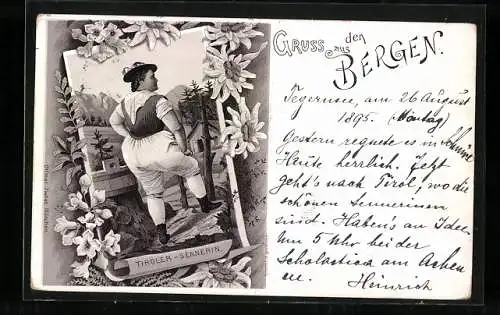 GRUSS aus den
BERGEN.
Tegernsee, am 26 August
1895. (Montag)
Gestern regnete es in
Heute herrlich. Jetzt
geht's nach Tirol, wo die
schönen Sennerinen
sind. Haben's an Idee.
Um 5 Uhr bei der
Scholastica am Achen
Heinrich
TIROLER - SENNERIN.